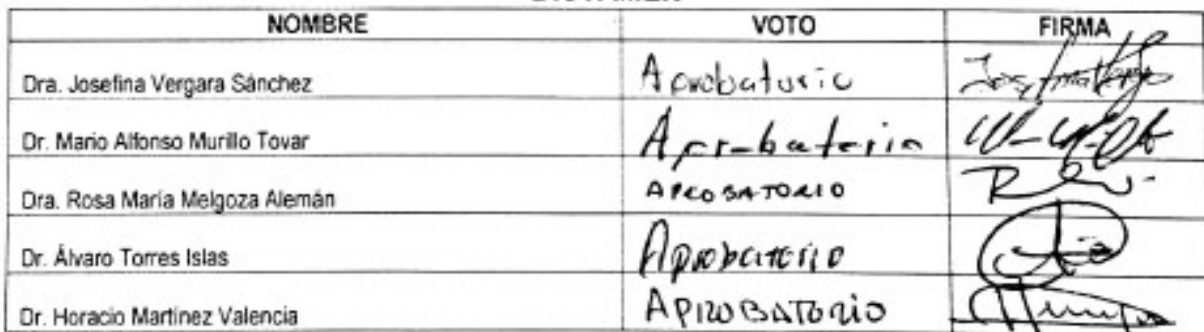 NOMBRE VOTO FIRMA
Dra. Josefina Vergara Sánchez Aprobatorio
Dr. Mario Alfonso Murillo Tovar Aprobatorio
Dra. Rosa María Melgoza Alemán APROBATORIO
Dr. Álvaro Torres Islas Aprobatorio
Dr. Horacio Martínez Valencia APROBATORIO